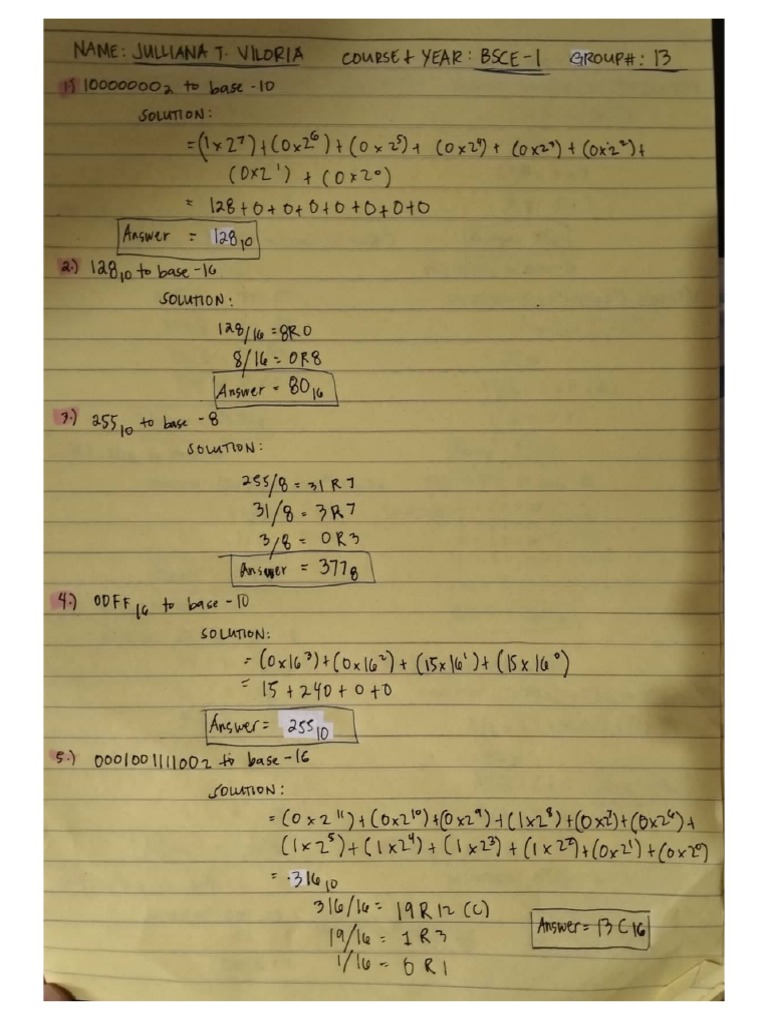 NAME: JULLIANA T. VILORIA COURSE & YEAR: BSCE-1 GROUP#: 13
1.) 10000000₂ to base -10
SOLUTION:
=(1x2⁷)+(0x2⁶)+(0x2⁵)+(0x2⁴)+(0x2³)+(0x2²)+
(0x2¹)+(0x2⁰)
= 128+0+0+0+0+0+0+0
Answer = 128₁₀
2.) 128₁₀ to base -16
SOLUTION:
128/16 = 8R0
8/16 = 0R8
Answer = 80₁₆
3.) 255₁₀ to base -8
SOLUTION:
255/8 = 31 R7
31/8 = 3R7
3/8 = 0R3
Answer = 377₈
4.) 00FF₁₆ to base -10
SOLUTION:
= (0x16³)+(0x16²)+(15x16¹)+(15x16⁰)
= 15+240+0+0
Answer = 255₁₀
5.) 000100111100₂ to base -16
SOLUTION:
= (0x2¹¹)+(0x2¹⁰)+(0x2⁹)+(1x2⁸)+(0x2⁷)+(0x2⁶)+
(1x2⁵)+(1x2⁴)+(1x2³)+(1x2²)+(0x2¹)+(0x2⁰)
= 316₁₀
316/16 = 19R12 (C)
19/16 = 1R3
1/16 = 0R1
Answer = 13C₁₆